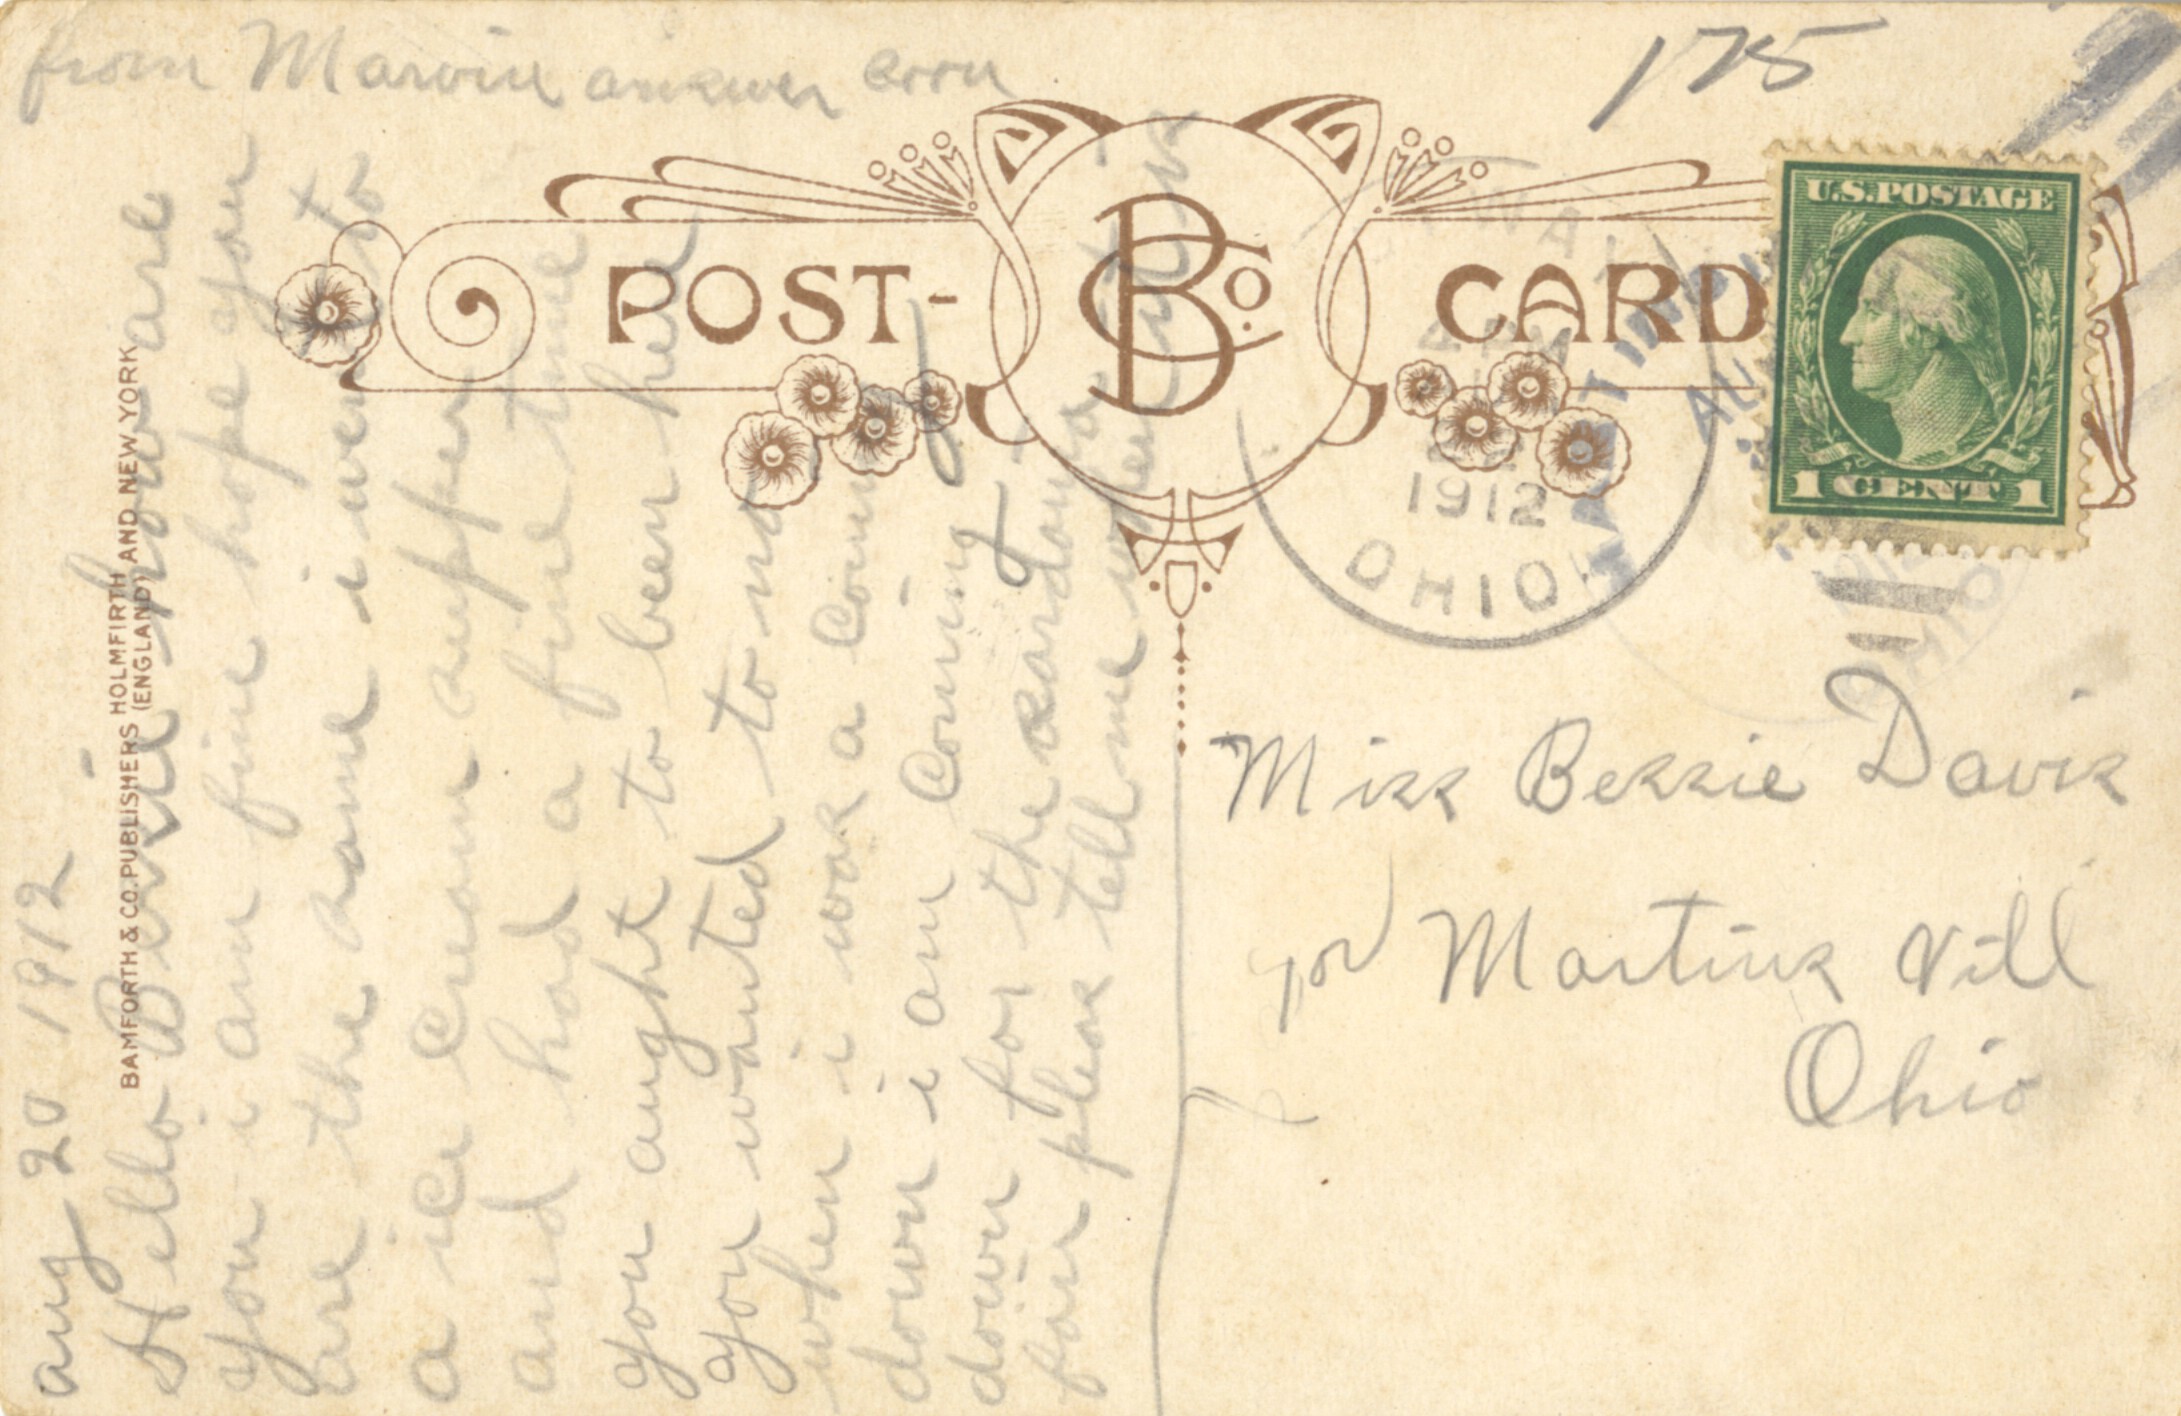 from Marvin answer soon
175
U.S. POSTAGE
1 CENT 1
POST-
BCo.
CARD
1912
OHIO
MARTINS
OHIO
BAMFORTH & CO. PUBLISHERS HOLMFIRTH (ENGLAND) AND NEW YORK
aug 20 1912
Hello how are
you i am fine hope you
are the same i went to
a ice cream supper
and had a fine time
you aught to been here
you wanted to no
when i was a coming
down i am coming
down for the Sardou
fair pleas tell me when it is
Miss Bessie Davis
Martins vill
Ohio